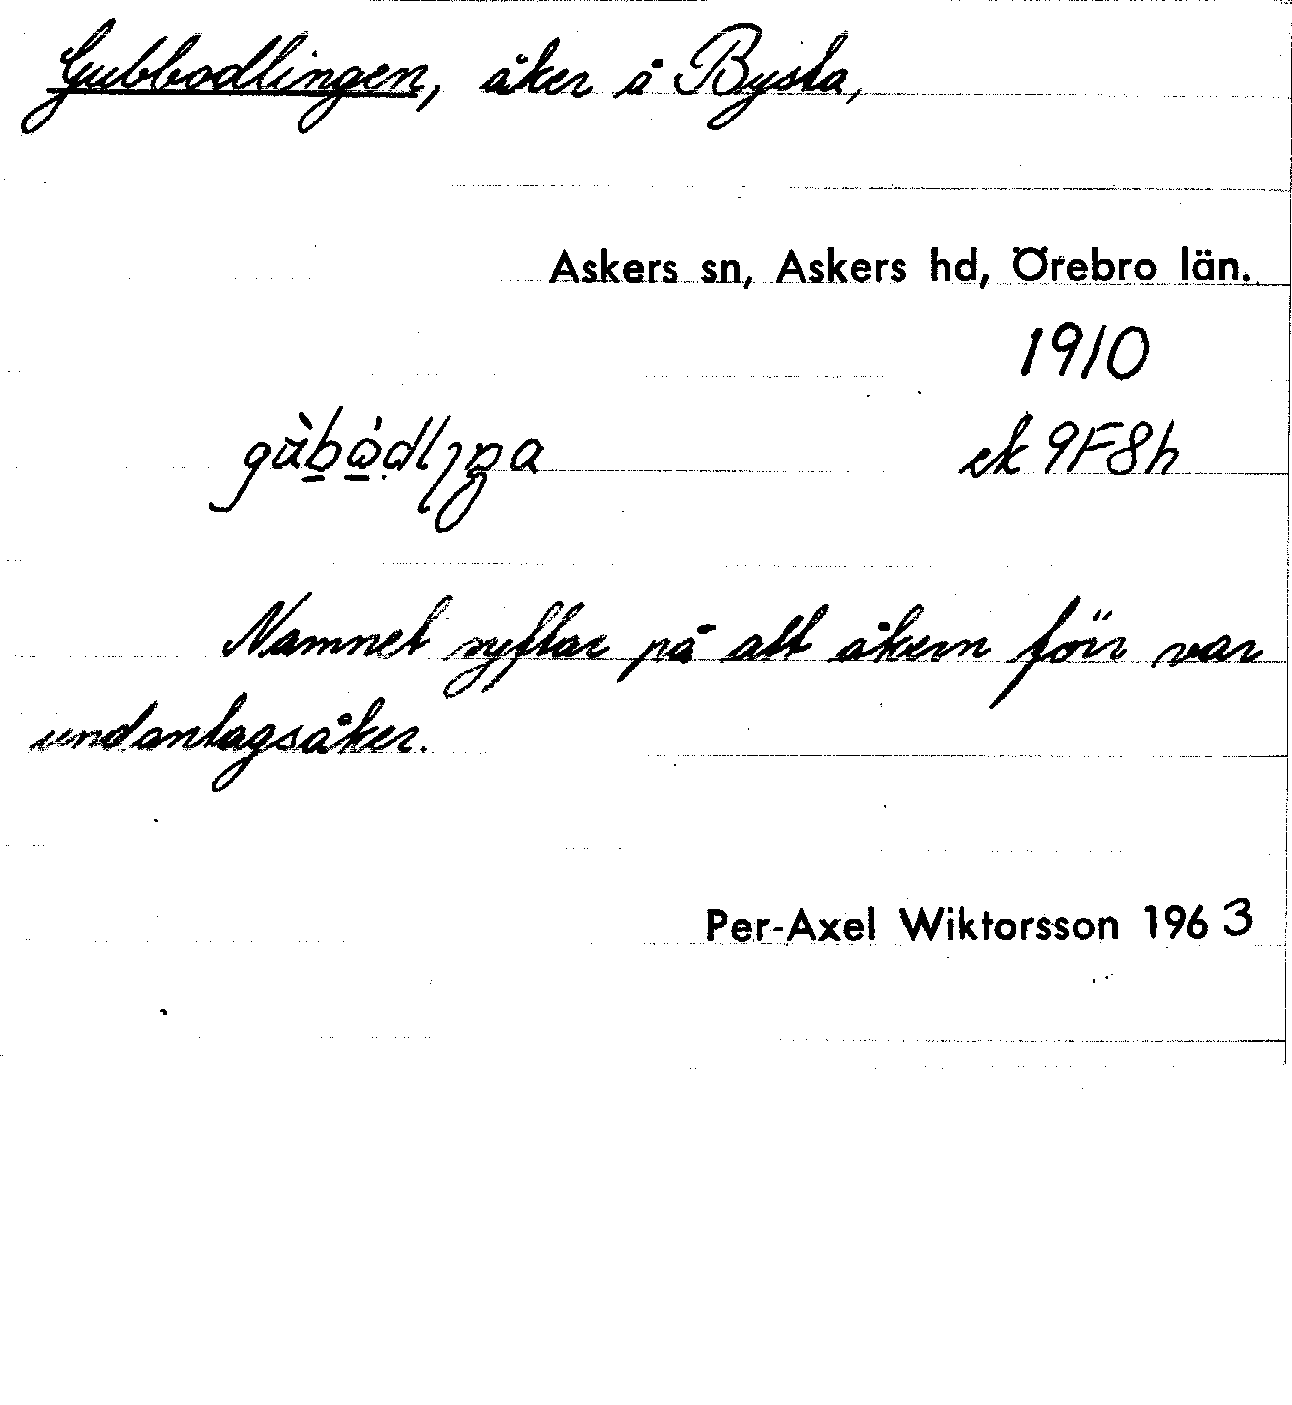 Gubbodlingen, åker å Bysta,
Askers sn, Askers hd, Örebro län.
1910
ek 9F8h
Namnet syftar på att åkern förr var
undantagsåker.
Per-Axel Wiktorsson 1963